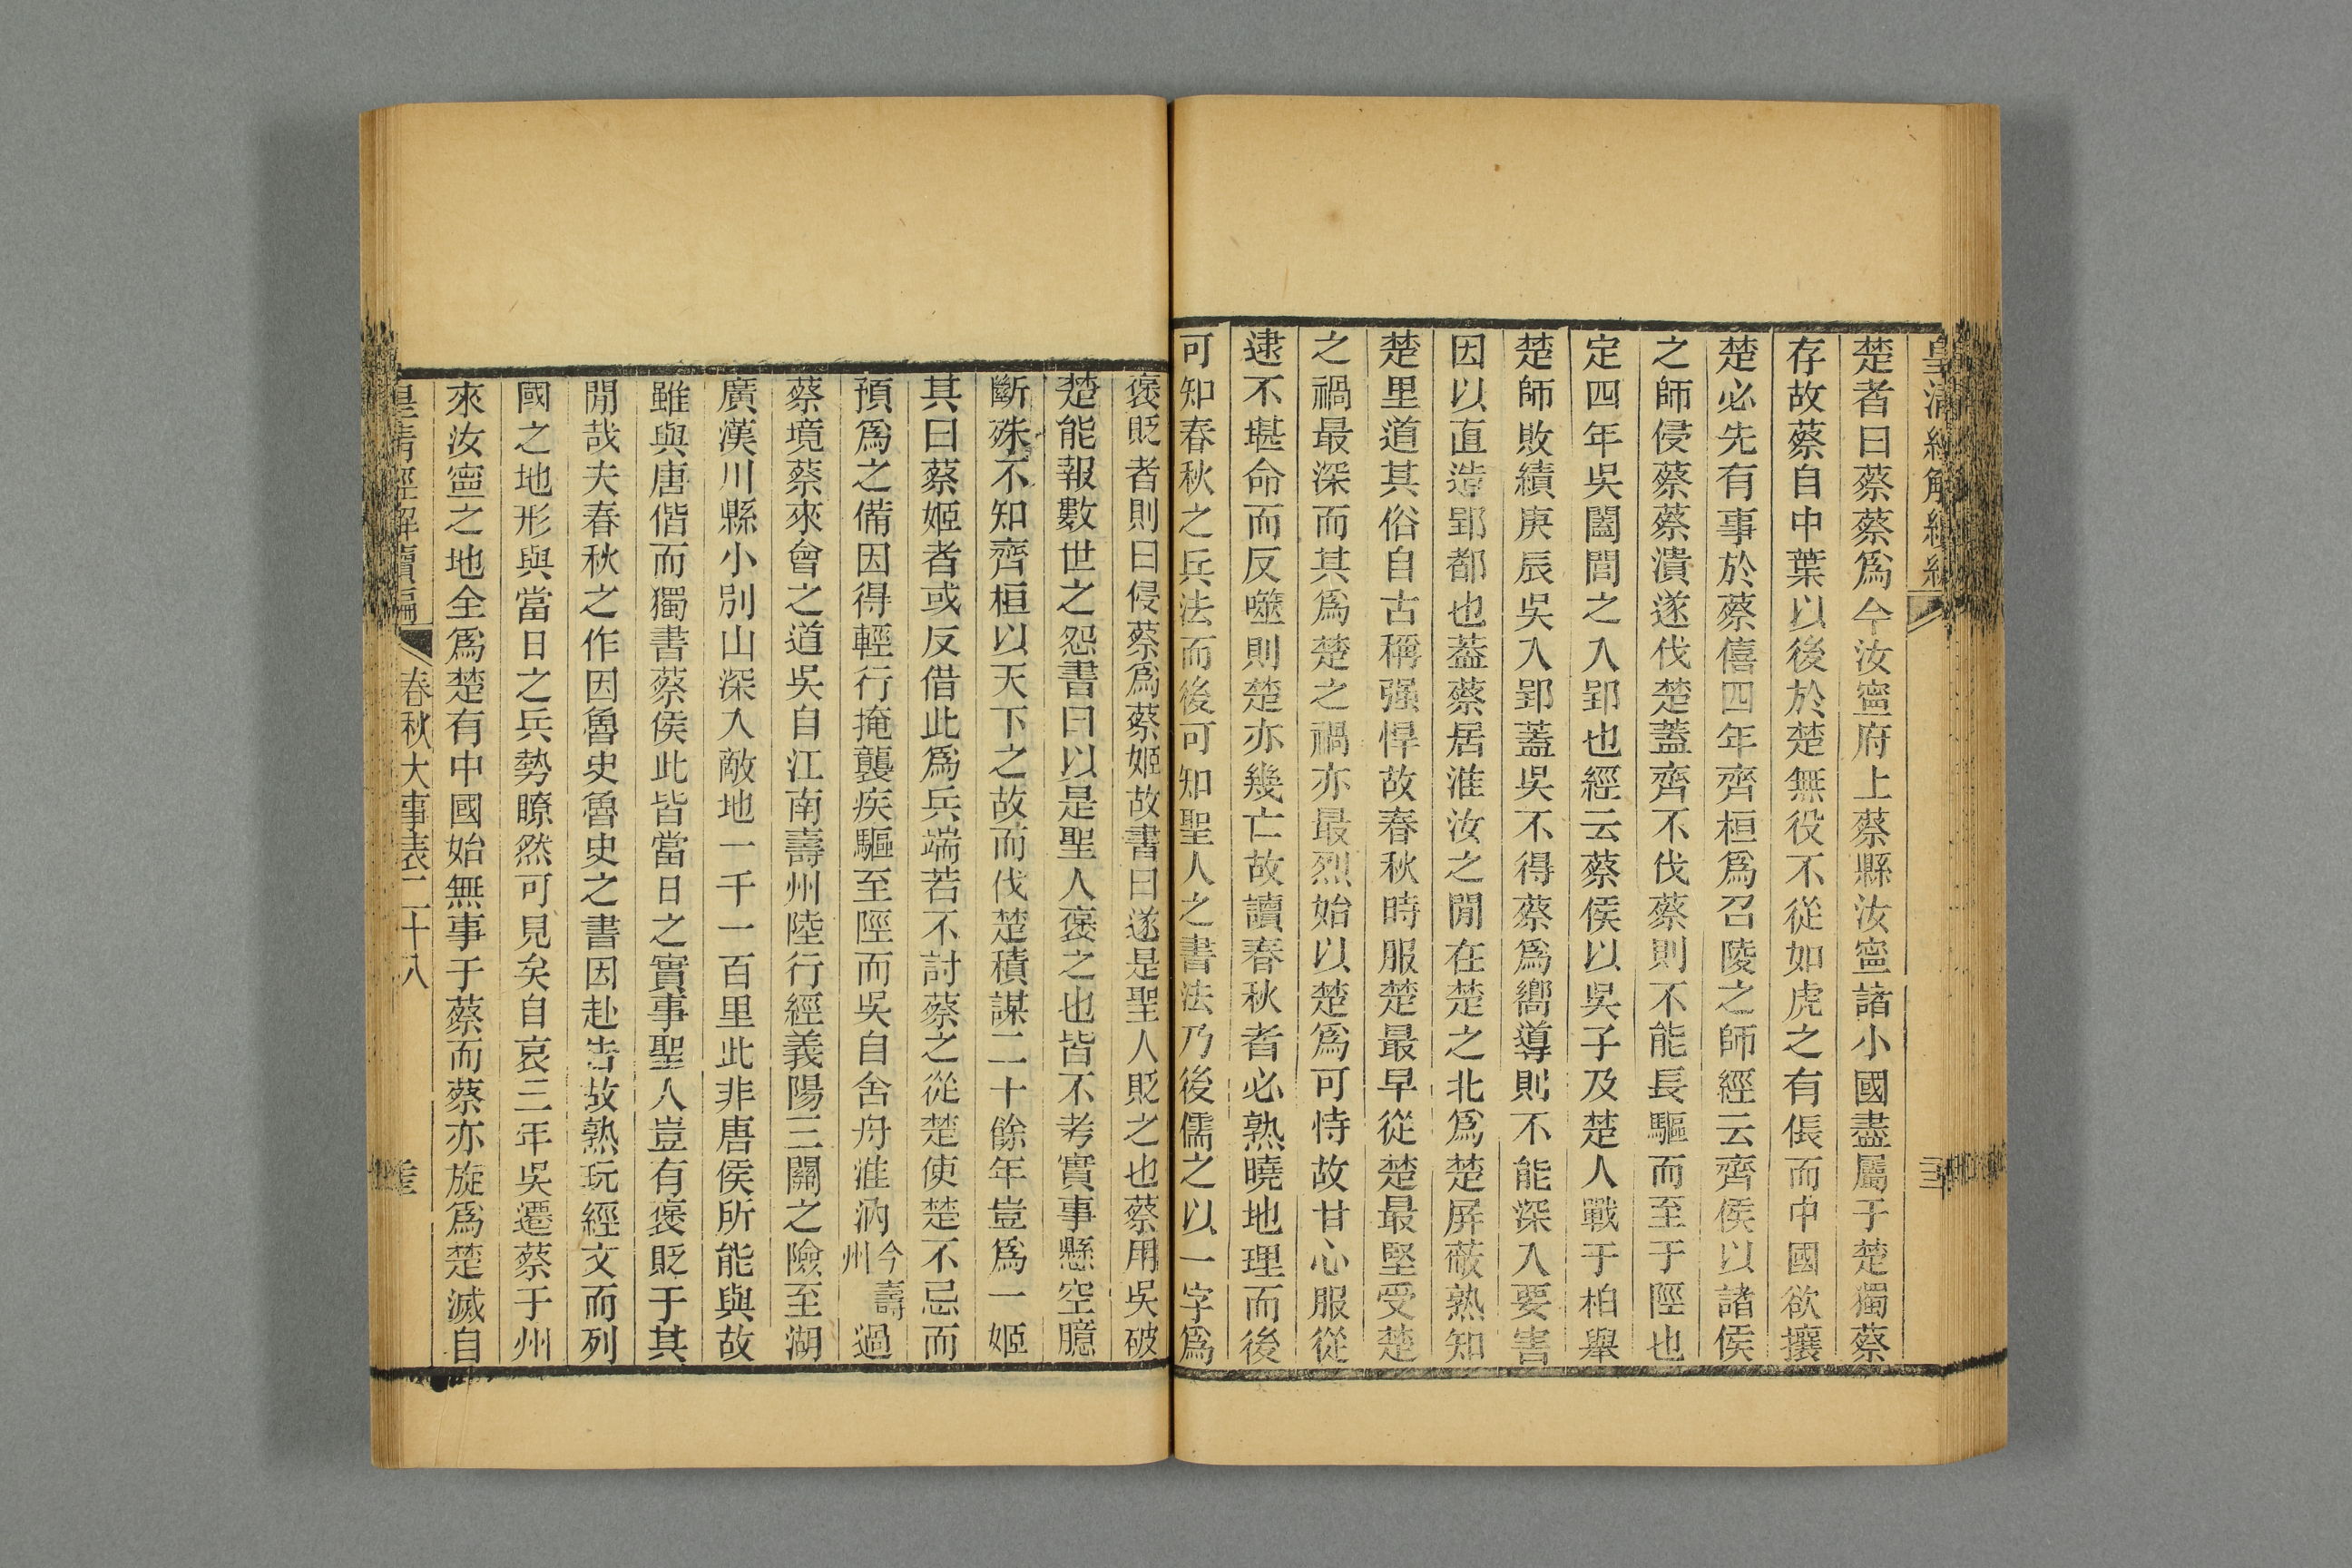 皇清經解續編
楚者曰蔡蔡爲今汝寧府上蔡縣汝寧諸小國盡屬于楚獨蔡
存故蔡自中葉以後於楚無役不從如虎之有倀而中國欲攘
楚必先有事於蔡僖四年齊桓爲召陵之師經云齊侯以諸侯
之師侵蔡蔡潰遂伐楚蓋齊不伐蔡則不能長驅而至于陘也
定四年吳闔閭之入郢也經云蔡侯以吳子及楚人戰于柏舉
楚師敗績庚辰吳入郢蓋吳不得蔡爲嚮導則不能深入要害
因以直造郢都也蓋蔡居淮汝之閒在楚之北爲楚屏蔽熟知
楚里道其俗自古稱强悍故春秋時服楚最早從楚最堅受楚
之禍最深而其爲楚之禍亦最烈始以楚爲可恃故甘心服從
逮不堪命而反噬則楚亦幾亡故讀春秋者必熟曉地理而後
可知春秋之兵法而後可知聖人之書法乃後儒之以一字爲
褒貶者則曰侵蔡爲蔡姬故書曰遂是聖人貶之也蔡用吳破
楚能報數世之怨書曰以是聖人褒之也皆不考實事懸空臆
斷殊不知齊桓以天下之故而伐楚積謀二十餘年豈爲一姬
其曰蔡姬者或反借此爲兵端若不討蔡之從楚使楚不忌而
預爲之備因得輕行掩襲疾驅至陘而吳自舍舟淮汭今壽州過
蔡境蔡來會之道吳自江南壽州陸行經義陽三關之險至湖
廣漢川縣小別山深入敵地一千一百里此非唐侯所能與故
雖與唐偕而獨書蔡侯此皆當日之實事聖人豈有褒貶于其
閒哉夫春秋之作因魯史魯史之書因赴告故熟玩經文而列
國之地形與當日之兵勢瞭然可見矣自哀三年吳遷蔡于州
來汝寧之地全爲楚有中國始無事于蔡而蔡亦旋爲楚滅自
皇清經解續編 春秋大事表二十八